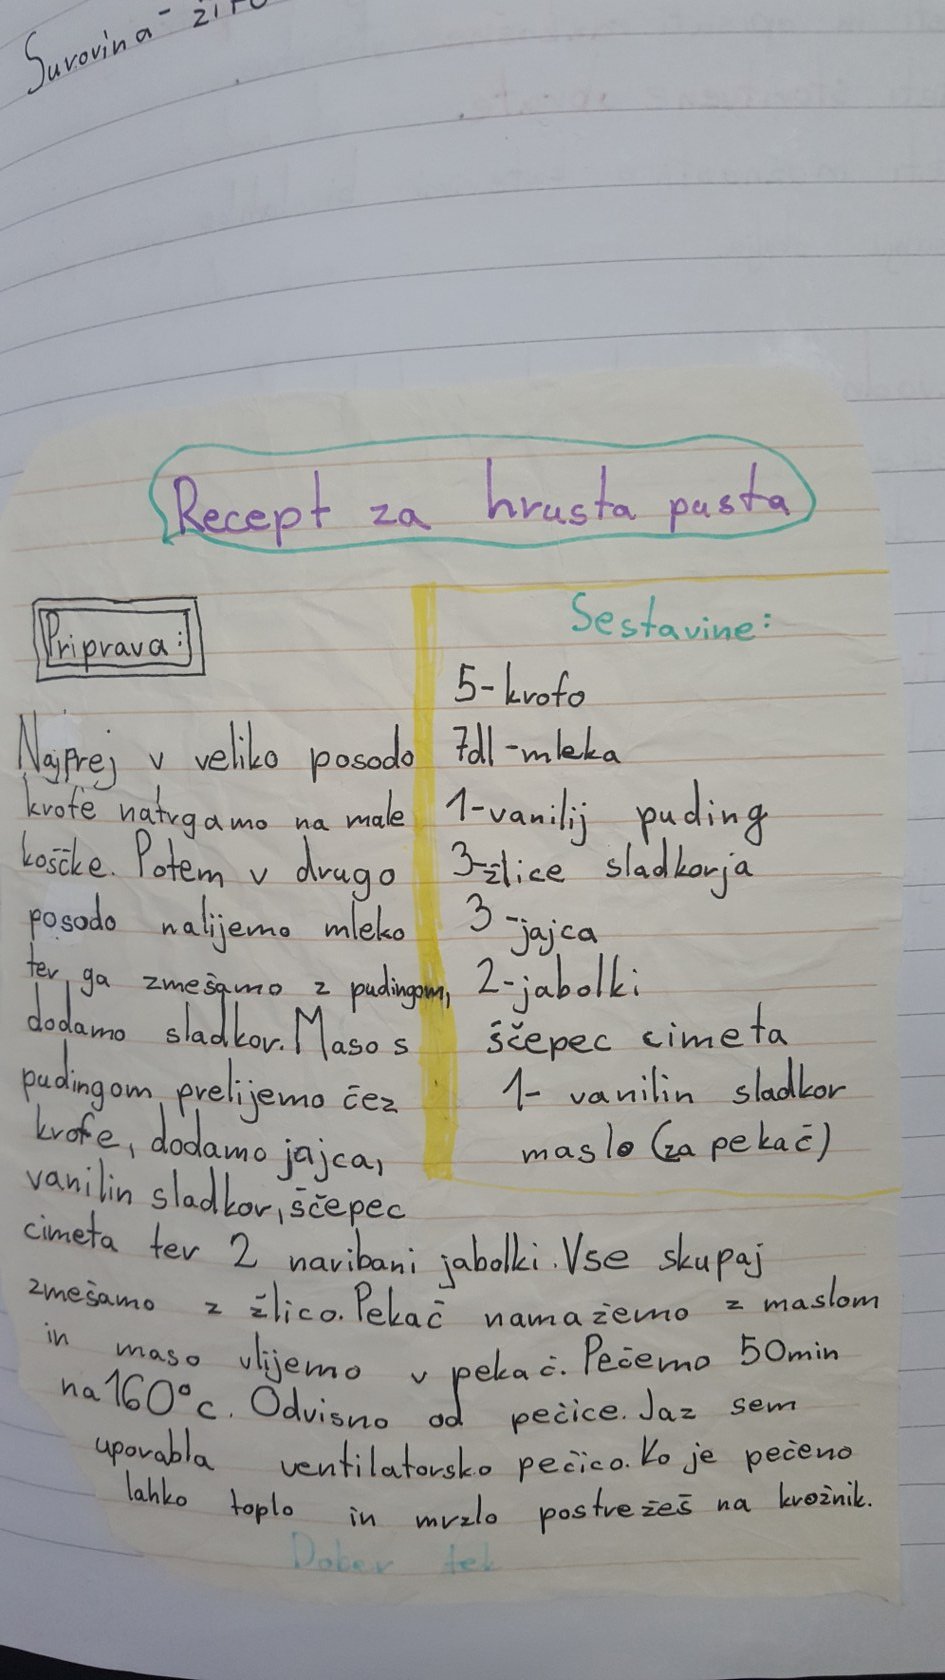 Surovina - žito
Recept za hrusta pusta
Priprava:
Najprej v veliko posodo
krofe natrgamo na male
koščke. Potem v drugo
posodo nalijemo mleko
ter ga zmešamo z pudingom,
dodamo sladkor. Maso s
pudingom prelijemo čez
krofe, dodamo jajca,
vanilin sladkor, ščepec
cimeta ter 2 naribani jabolki. Vse skupaj
zmešamo z žlico. Pekač namažemo z maslom
in maso vlijemo v pekač. Pečemo 50min
na 160°c. Odvisno od pečice. Jaz sem
uporabla ventilatorsko pečico. Ko je pečeno
lahko toplo in mrzlo postrežeš na krožnik.
Dober tek
Sestavine:
5-krofo
7dl-mleka
1-vanilij puding
3-žlice sladkorja
3-jajca
2-jabolki
ščepec cimeta
1- vanilin sladkor
maslo (za pekač)